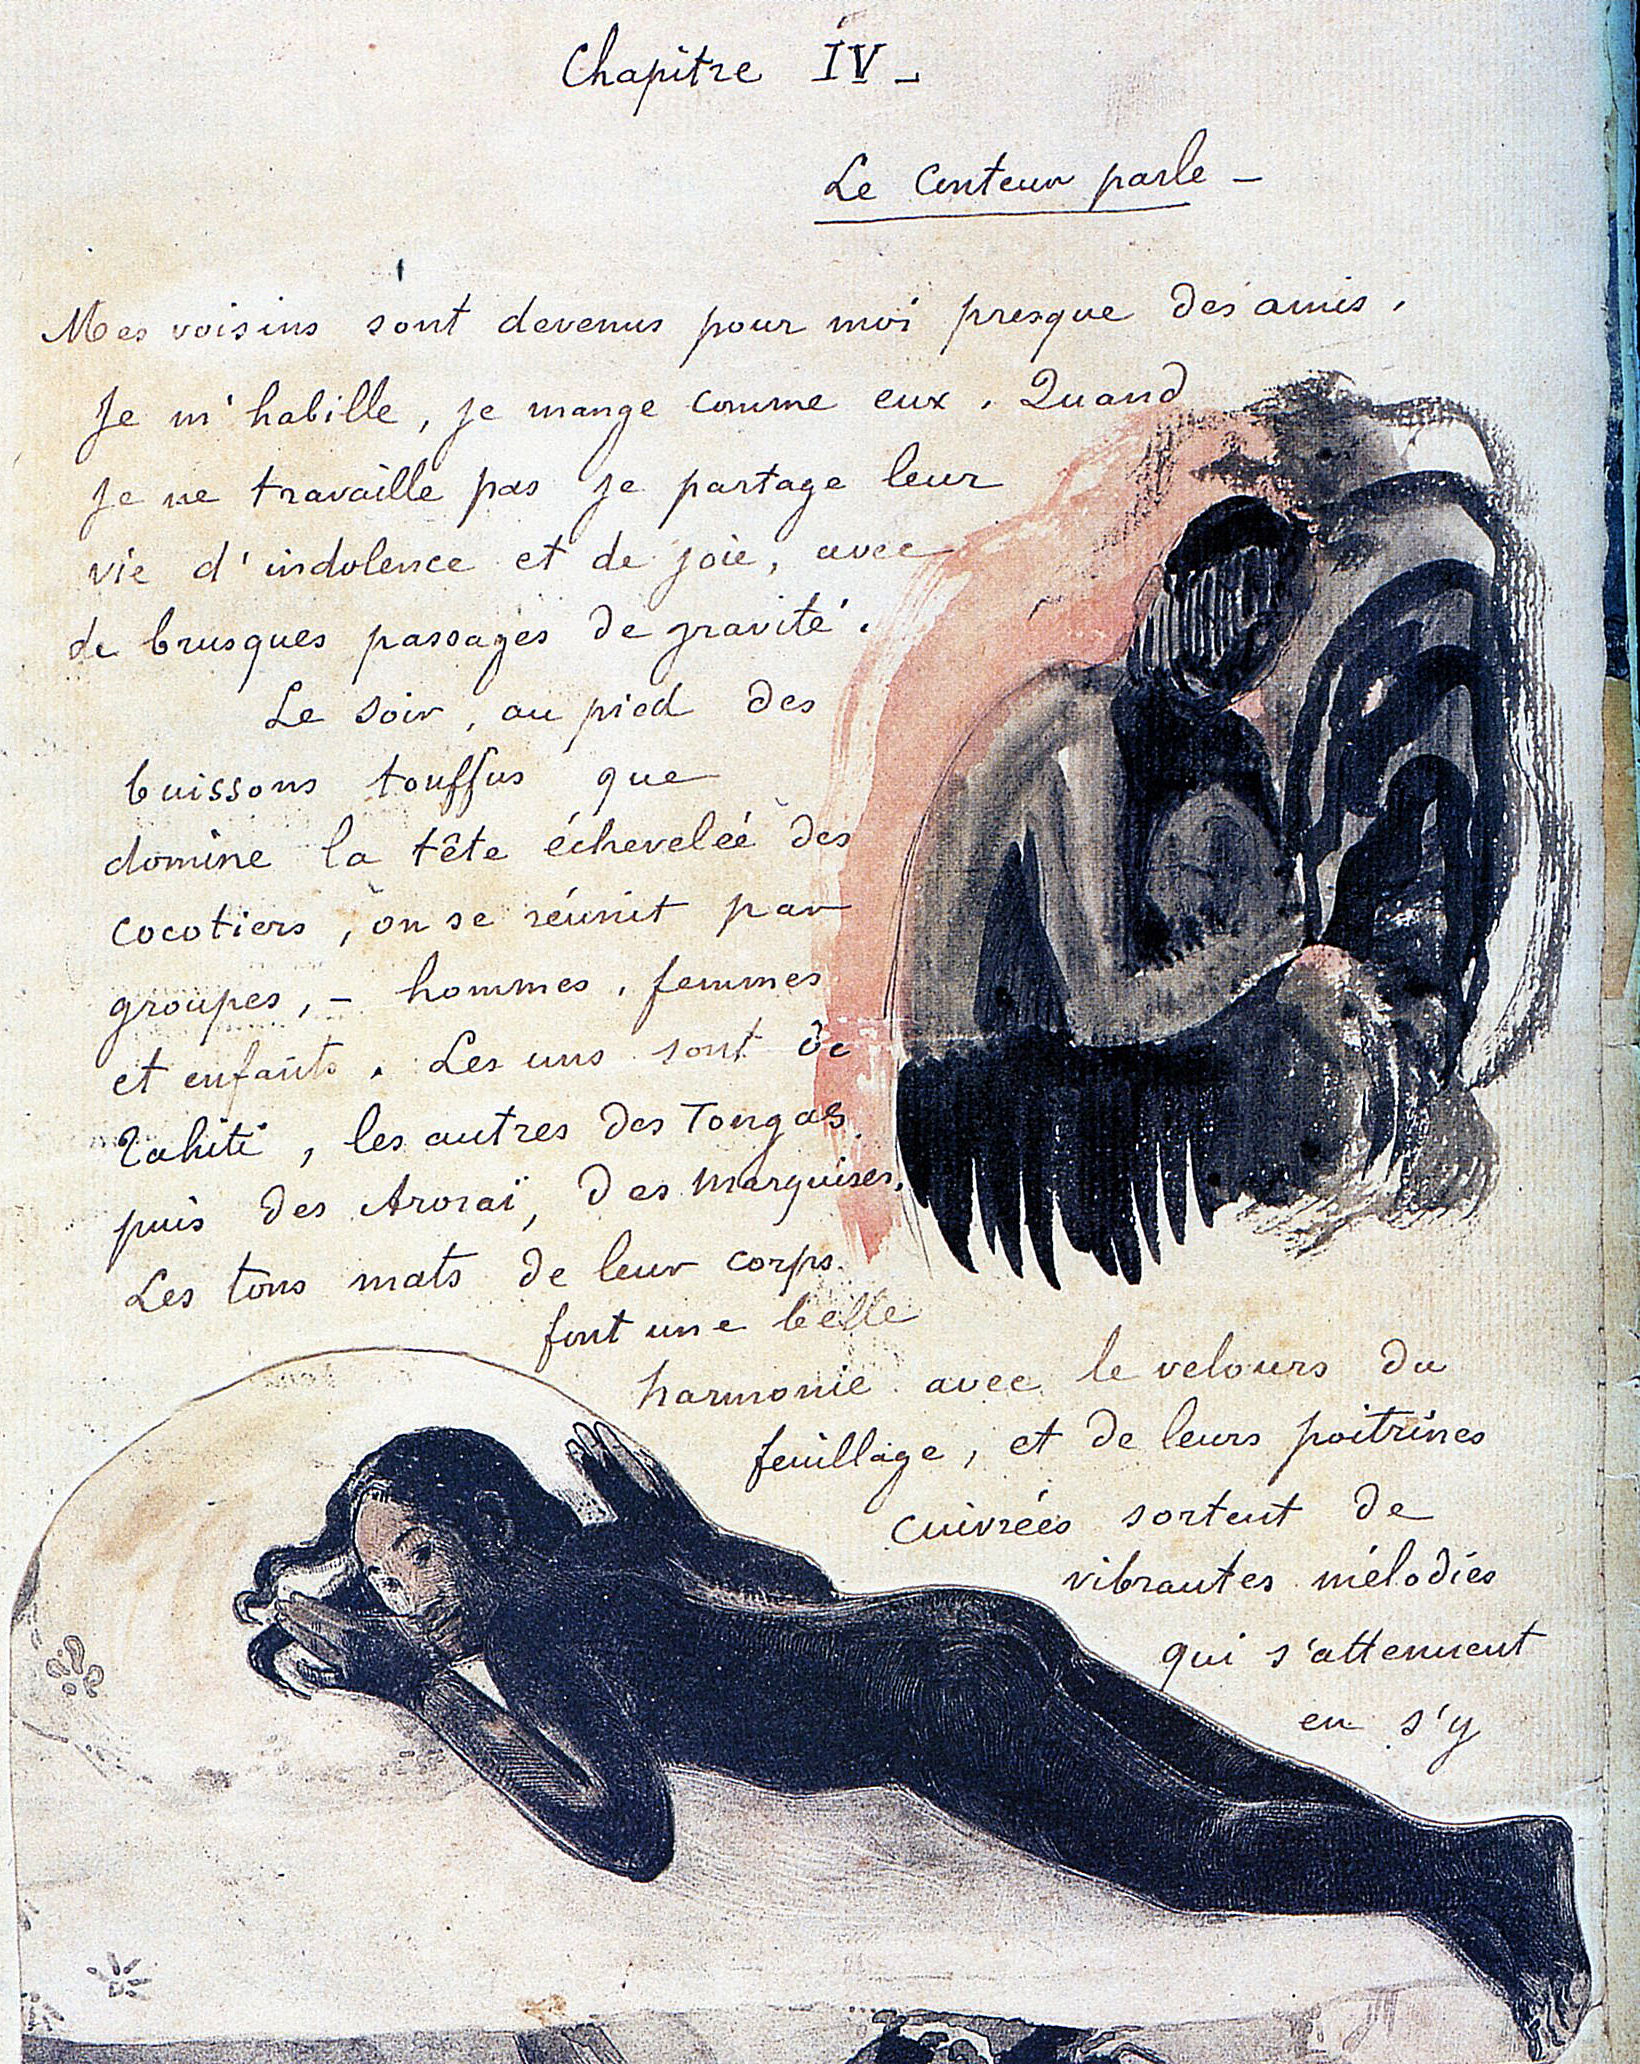 Chapitre IV -
Le Conteur parle -
Mes voisins sont devenus pour moi presque des amis.
Je m'habille, je mange comme eux. Quand
je ne travaille pas je partage leur
vie d'indolence et de joie, avec
de brusques passages de gravité.
Le soir, au pied des
buissons touffus que
domine la tête échevelée des
cocotiers, on se réunit par
groupes, - hommes, femmes
et enfants. Les uns sont de
Tahiti, les autres des Tongas,
puis des Arorai, des Marquises.
Les tons mats de leur corps
font une belle
harmonie avec le velours du
feuillage, et de leurs poitrines
cuivrées sortent de
vibrantes mélodies
qui s'attenuent
en s'y